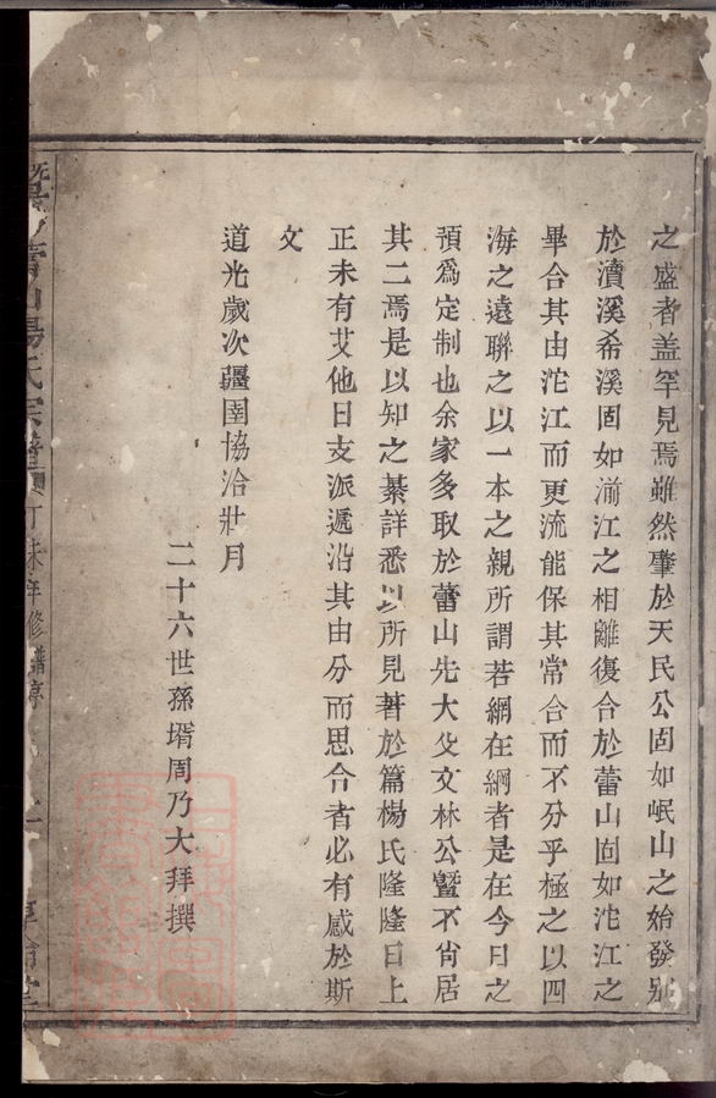 之盛者盖罕見焉雖然肇於天民公固如岷山之始發别
於瀆溪希溪固如湔江之相離復合於蕾山固如沱江之
畢合其由沱江而更流能保其常合而不分乎極之以四
海之遠聯之以一本之親所謂若網在綱者是在今日之
預爲定制也余家多取於蕾山先大父文林公暨不肖居
其二焉是以知之綦詳悉以所見著於篇楊氏隆隆日上
正未有艾他日支派遞沿其由分而思合者必有感於斯
文
道光歲次彊圉協洽壯月
二十六世孫壻周乃大拜撰
山楊氏宗譜 丁未年修 譜序